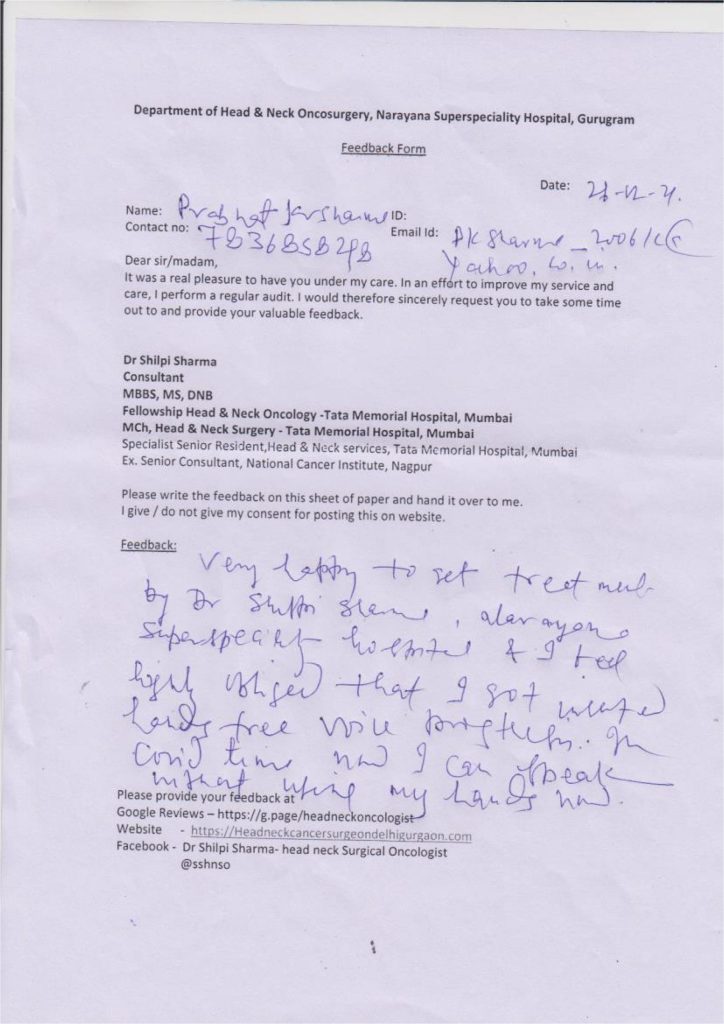 Department of Head & Neck Oncosurgery, Narayana Superspeciality Hospital, Gurugram
Feedback Form
Date:
Name: Prabhat Kr Sharma ID:
Contact no: Email Id:
Yahoo. Co. in.
Dear sir/madam,
It was a real pleasure to have you under my care. In an effort to improve my service and
care, I perform a regular audit. I would therefore sincerely request you to take some time
out to and provide your valuable feedback.
Dr Shilpi Sharma
Consultant
MBBS, MS, DNB
Fellowship Head & Neck Oncology -Tata Memorial Hospital, Mumbai
MCh, Head & Neck Surgery - Tata Memorial Hospital, Mumbai
Specialist Senior Resident,Head & Neck services, Tata Memorial Hospital, Mumbai
Ex. Senior Consultant, National Cancer Institute, Nagpur
Please write the feedback on this sheet of paper and hand it over to me.
I give / do not give my consent for posting this on website.
Feedback:
Very happy to get treatment
by Dr Shilpi Sharma, Narayana
Superspeciality hospital & I feel
highly obliged that I got
hands free voice In
Covid time now I can speak
without using my hands now.
Please provide your feedback at
Google Reviews – https://g.page/headneckoncologist
Website - https://Headneckcancersurgeondelhigurgaon.com
Facebook - Dr Shilpi Sharma- head neck Surgical Oncologist
@sshnso